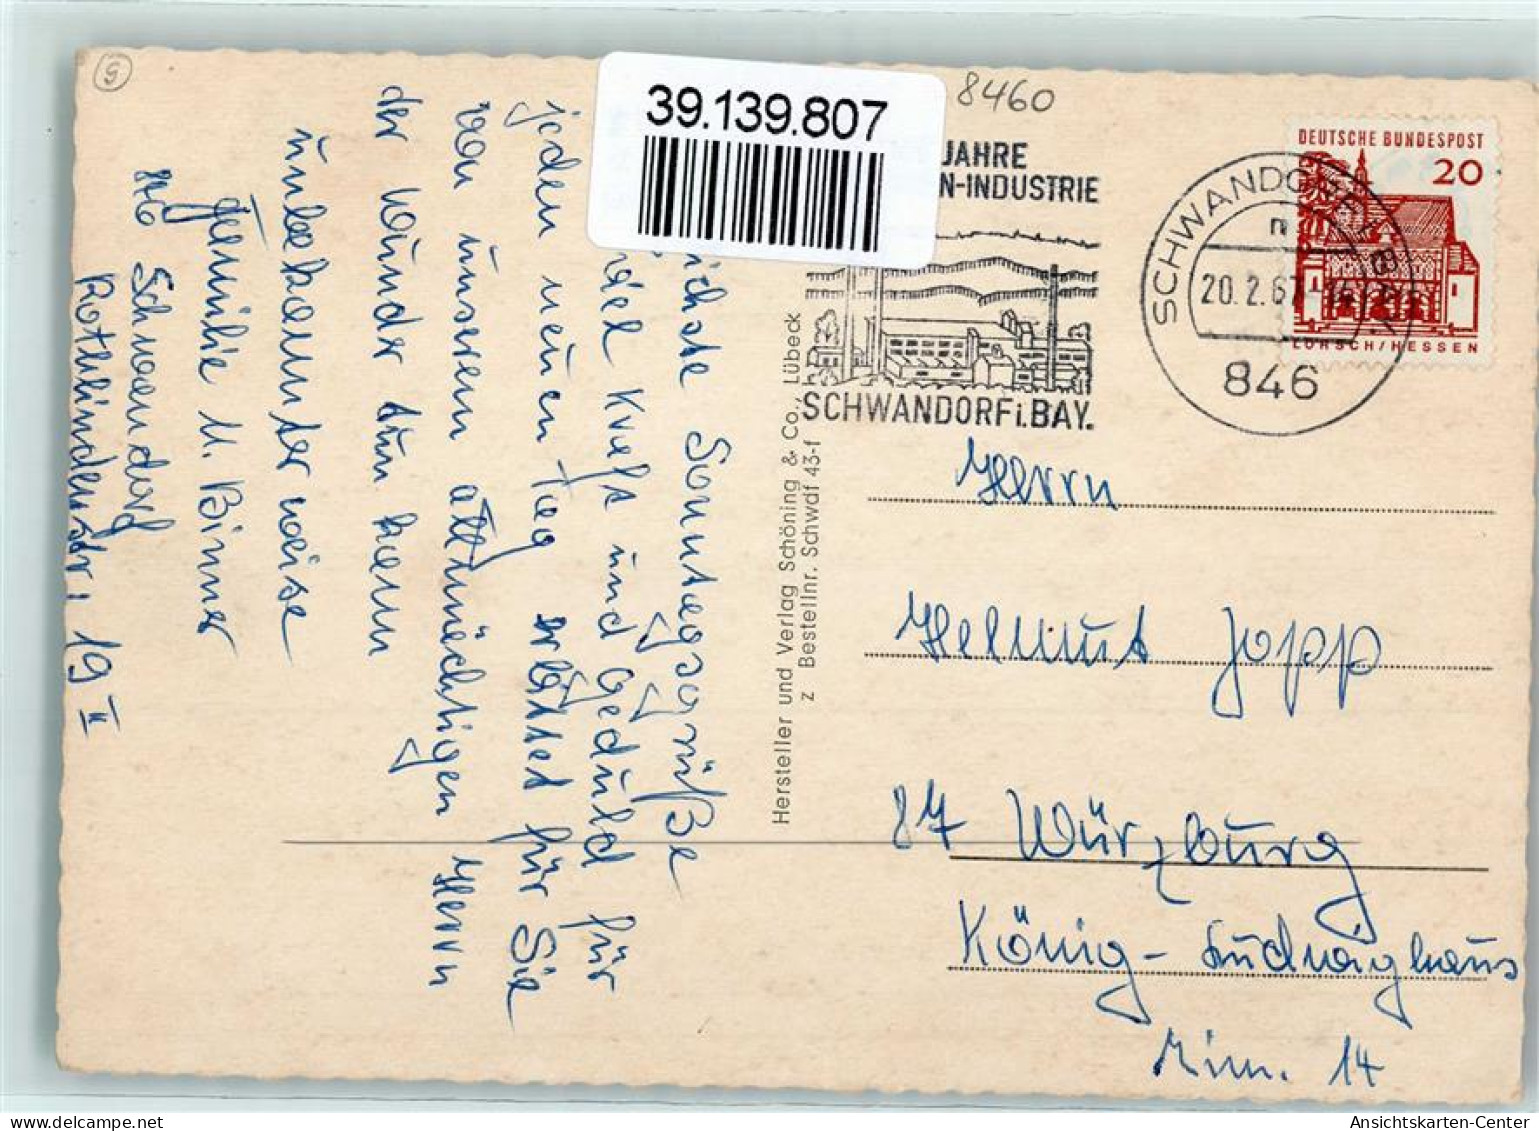 9
39.139.807
8460
JAHRE
N-INDUSTRIE
SCHWANDORF i. BAY.
SCHWANDORF i. BAY.
n
20. 2. 67
846
DEUTSCHE BUNDESPOST
20
LORSCH/HESSEN
Sonntagsgrüße
viel Kraft und Geduld für
jeden neuen Tag erbittet für Sie
von unserem allmächtigen Herrn
der Wunder tun kann
unbekannterweise
Familie M. Binner
846 Schwandorf
Rothlindenstr. 19 II
Hersteller und Verlag Schöning & Co., Lübeck
z Bestellnr. Schwdf 43-f
Herrn
Helmut Jopp
87 Würzburg
König-Ludwighaus
Zim. 14
Ansichtskarten-Center